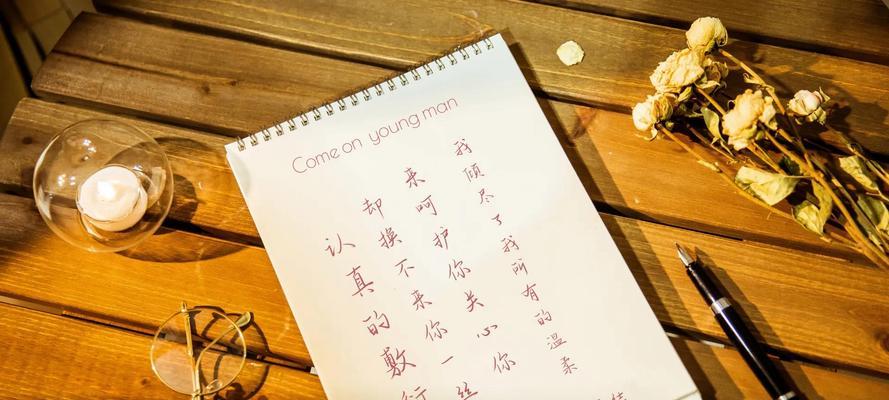 Come on young man
我倾尽了我所有的温柔
来呵护你关心你
却换不来你一丝
认真的敷衍